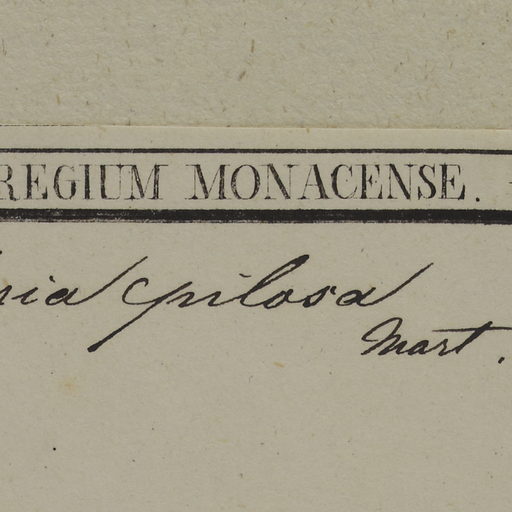 REGIUM MONACENSE.
ria epilosa
Mart.